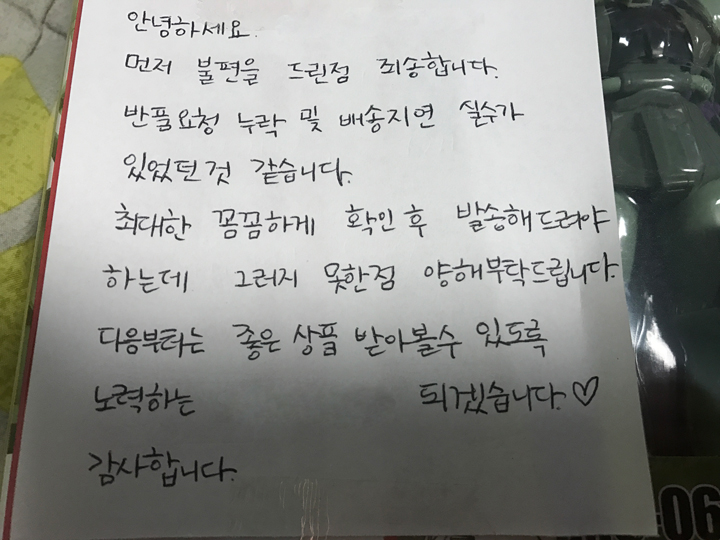 안녕하세요.
먼저 불편을 드린점 죄송합니다.
반품요청 누락 및 배송지연 실수가
있었던것 같습니다.
최대한 꼼꼼하게 확인 후 발송해드려야
하는데 그러지 못한점 양해부탁드립니다.
다음부터는 좋은 상품 받아볼수 있도록
노력하는 되겠습니다.♡
감사합니다.
:06